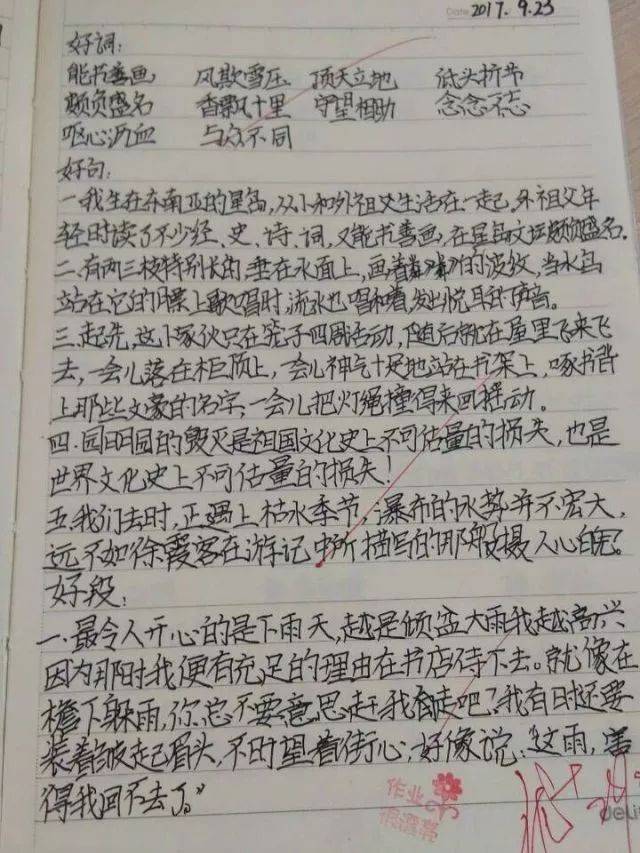 Date 2017.9.23
好词:
能书善画 风欺雪压 顶天立地 低头折节
颇负盛名 香飘十里 守望相助 念念不忘
呕心沥血 与众不同
好句:
一.我生在东南亚的星岛,从小和外祖父生活在一起。外祖父年
轻时读了不少经、史、诗、词,又能书善画,在星岛文坛颇负盛名。
二.有两三枝特别长的,垂在水面上,画着粼粼的波纹,当水鸟
站在它的腰上歌唱时,流水也唱和着,发出悦耳的声音。
三.起先,这小家伙只在笼子四周活动,随后就在屋里飞来飞
去,一会儿落在柜顶上,一会儿神气十足地站在书架上,啄书背
上那些文豪的名字,一会儿把灯绳撞得来回摇动。
四.圆明园的毁灭是祖国文化史上不可估量的损失,也是
世界文化史上不可估量的损失!
五.我们去时,正遇上枯水季节,瀑布的水势并不宏大,
远不如徐霞客在游记中所描写的那般摄人心魄。
好段:
一.最令人开心的是下雨天,越是倾盆大雨我越高兴
因为那时我便有充足的理由在书店待下去。就像在
檐下躲雨,你总不要意思赶我走吧?我有时还要
装着皱起眉头,不时望着街心,好像说:"这雨,害
得我回不去了。"
作业
很漂亮
deli